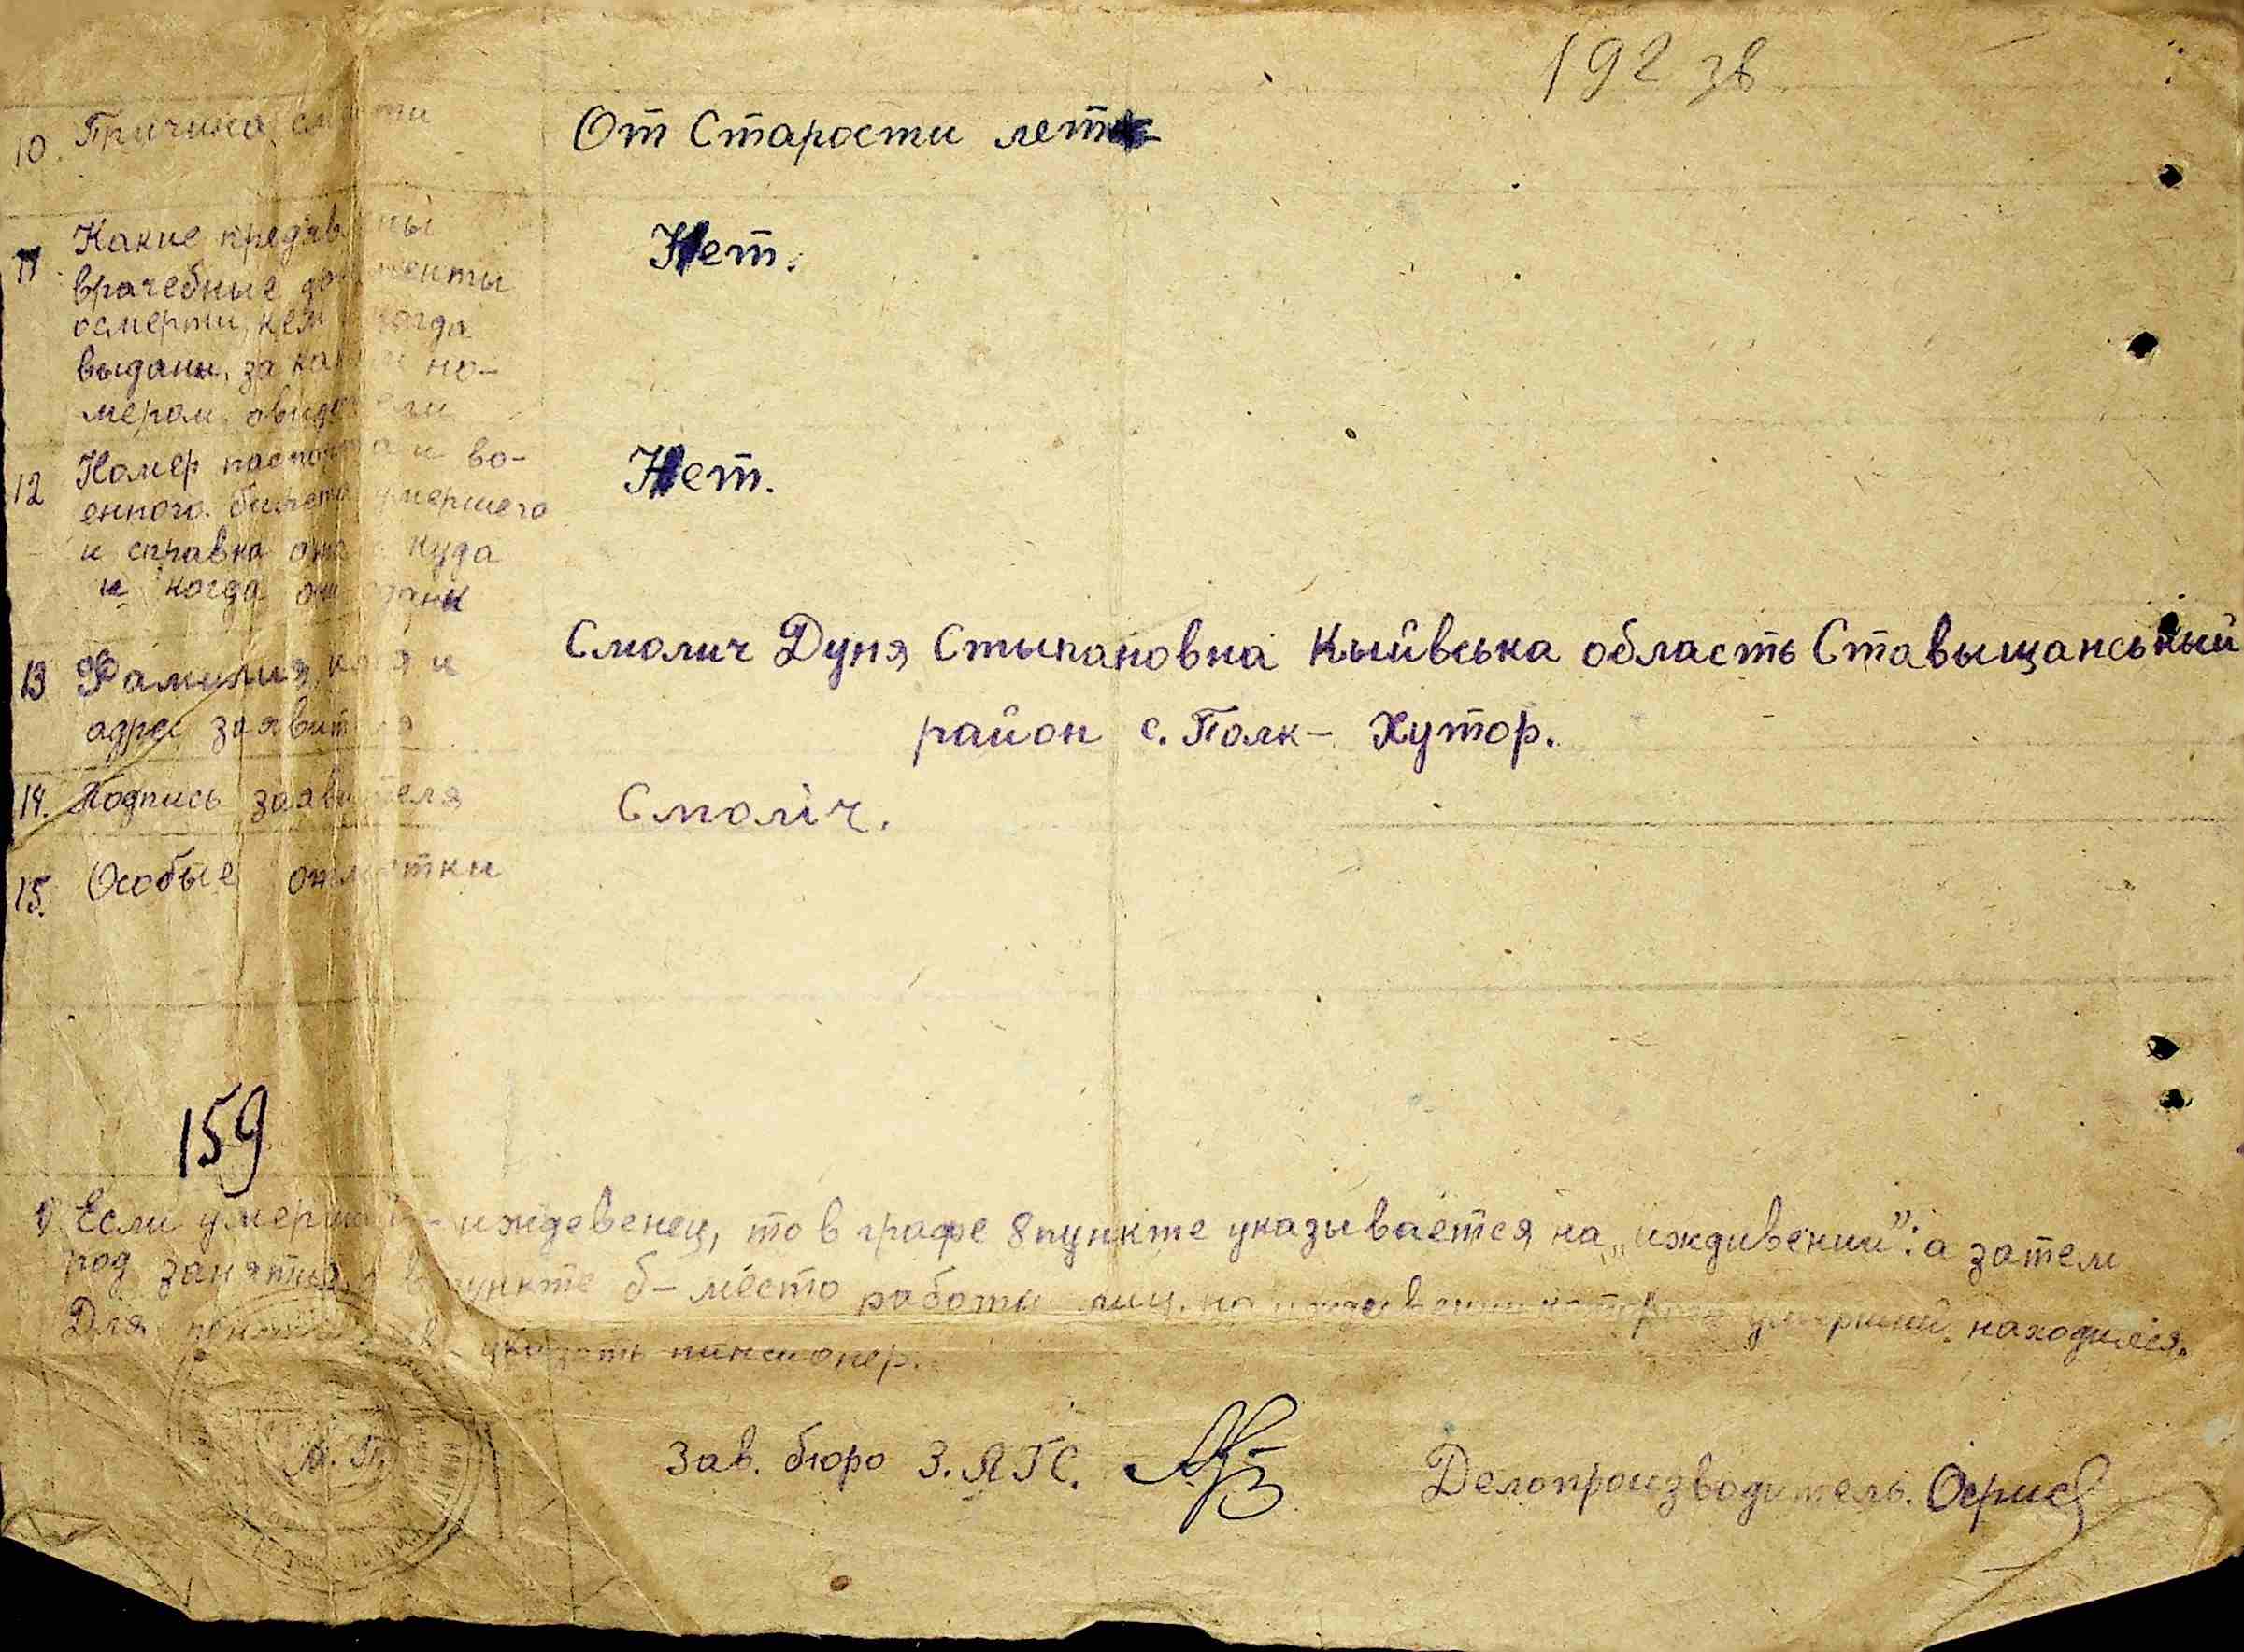 192 зв
10. Причина смерти
От Старости лет
11 Какие предъявлены
врачебные документы
осмерти, кем и когда
выданы, за каким но-
мером.
Нет.
12 Номер паспорта и во-
енного билета умершего
и справка куда
и когда
Нет.
13 Фамилия, имя и
адрес заявителя
Смолич Дуня Стыпановна Кыйивська область Ставыщанськый
район с. Полк- Хутор.
14. Подпись заявителя
Смоліч.
15. Особые отметки
159
Если умерший - иждевенец, то в графе 8 пункте указывается на „иждивении": а затем
род занятия, в пункте б- место работы на которого умерший находился.
Для указать пинсионер.
М. П.
Зав. бюро З.АГС.
Делопроизводитель.